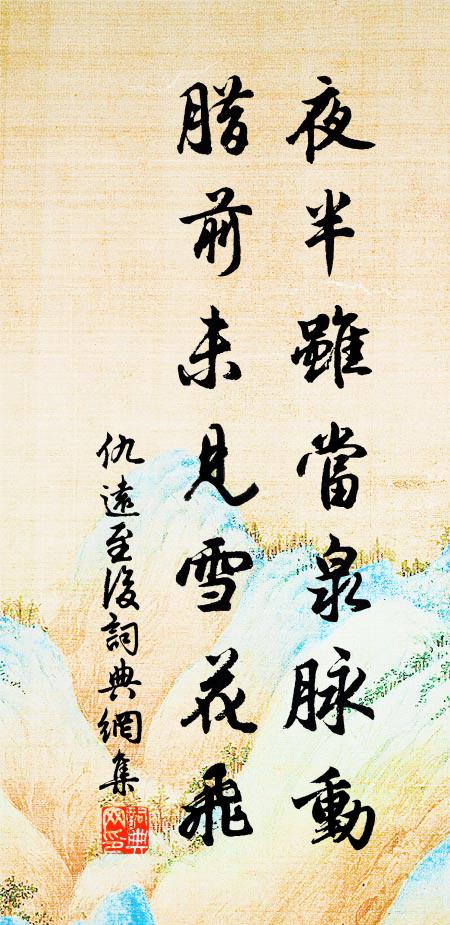 夜半雖當泉脉動
腊前未見雪花飛
仇遠至後詞典網集
詞典
网印